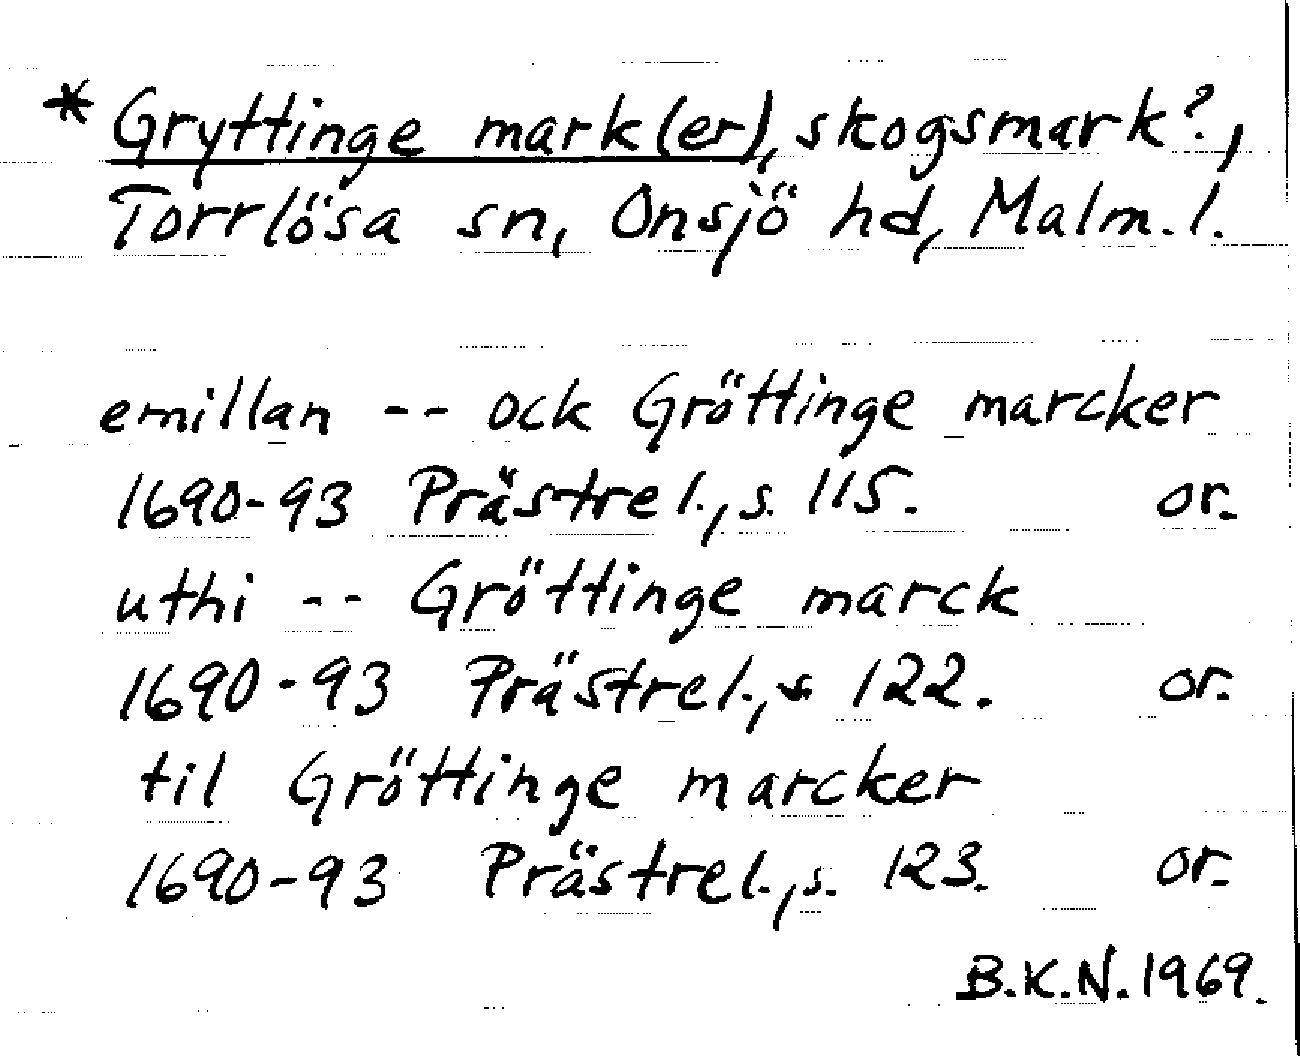 * Gryttinge mark(er), skogsmark?,
Torrlösa sn, Onsjö hd, Malm. l.
emillan -- ock Gröttinge marcker
1690-93 Prästrel., s. 115. or.
uthi -- Gröttinge marck
1690-93 Prästrel., s 122. or.
til Gröttinge marcker
1690-93 Prästrel., s. 123. or.
B.K.N. 1969.